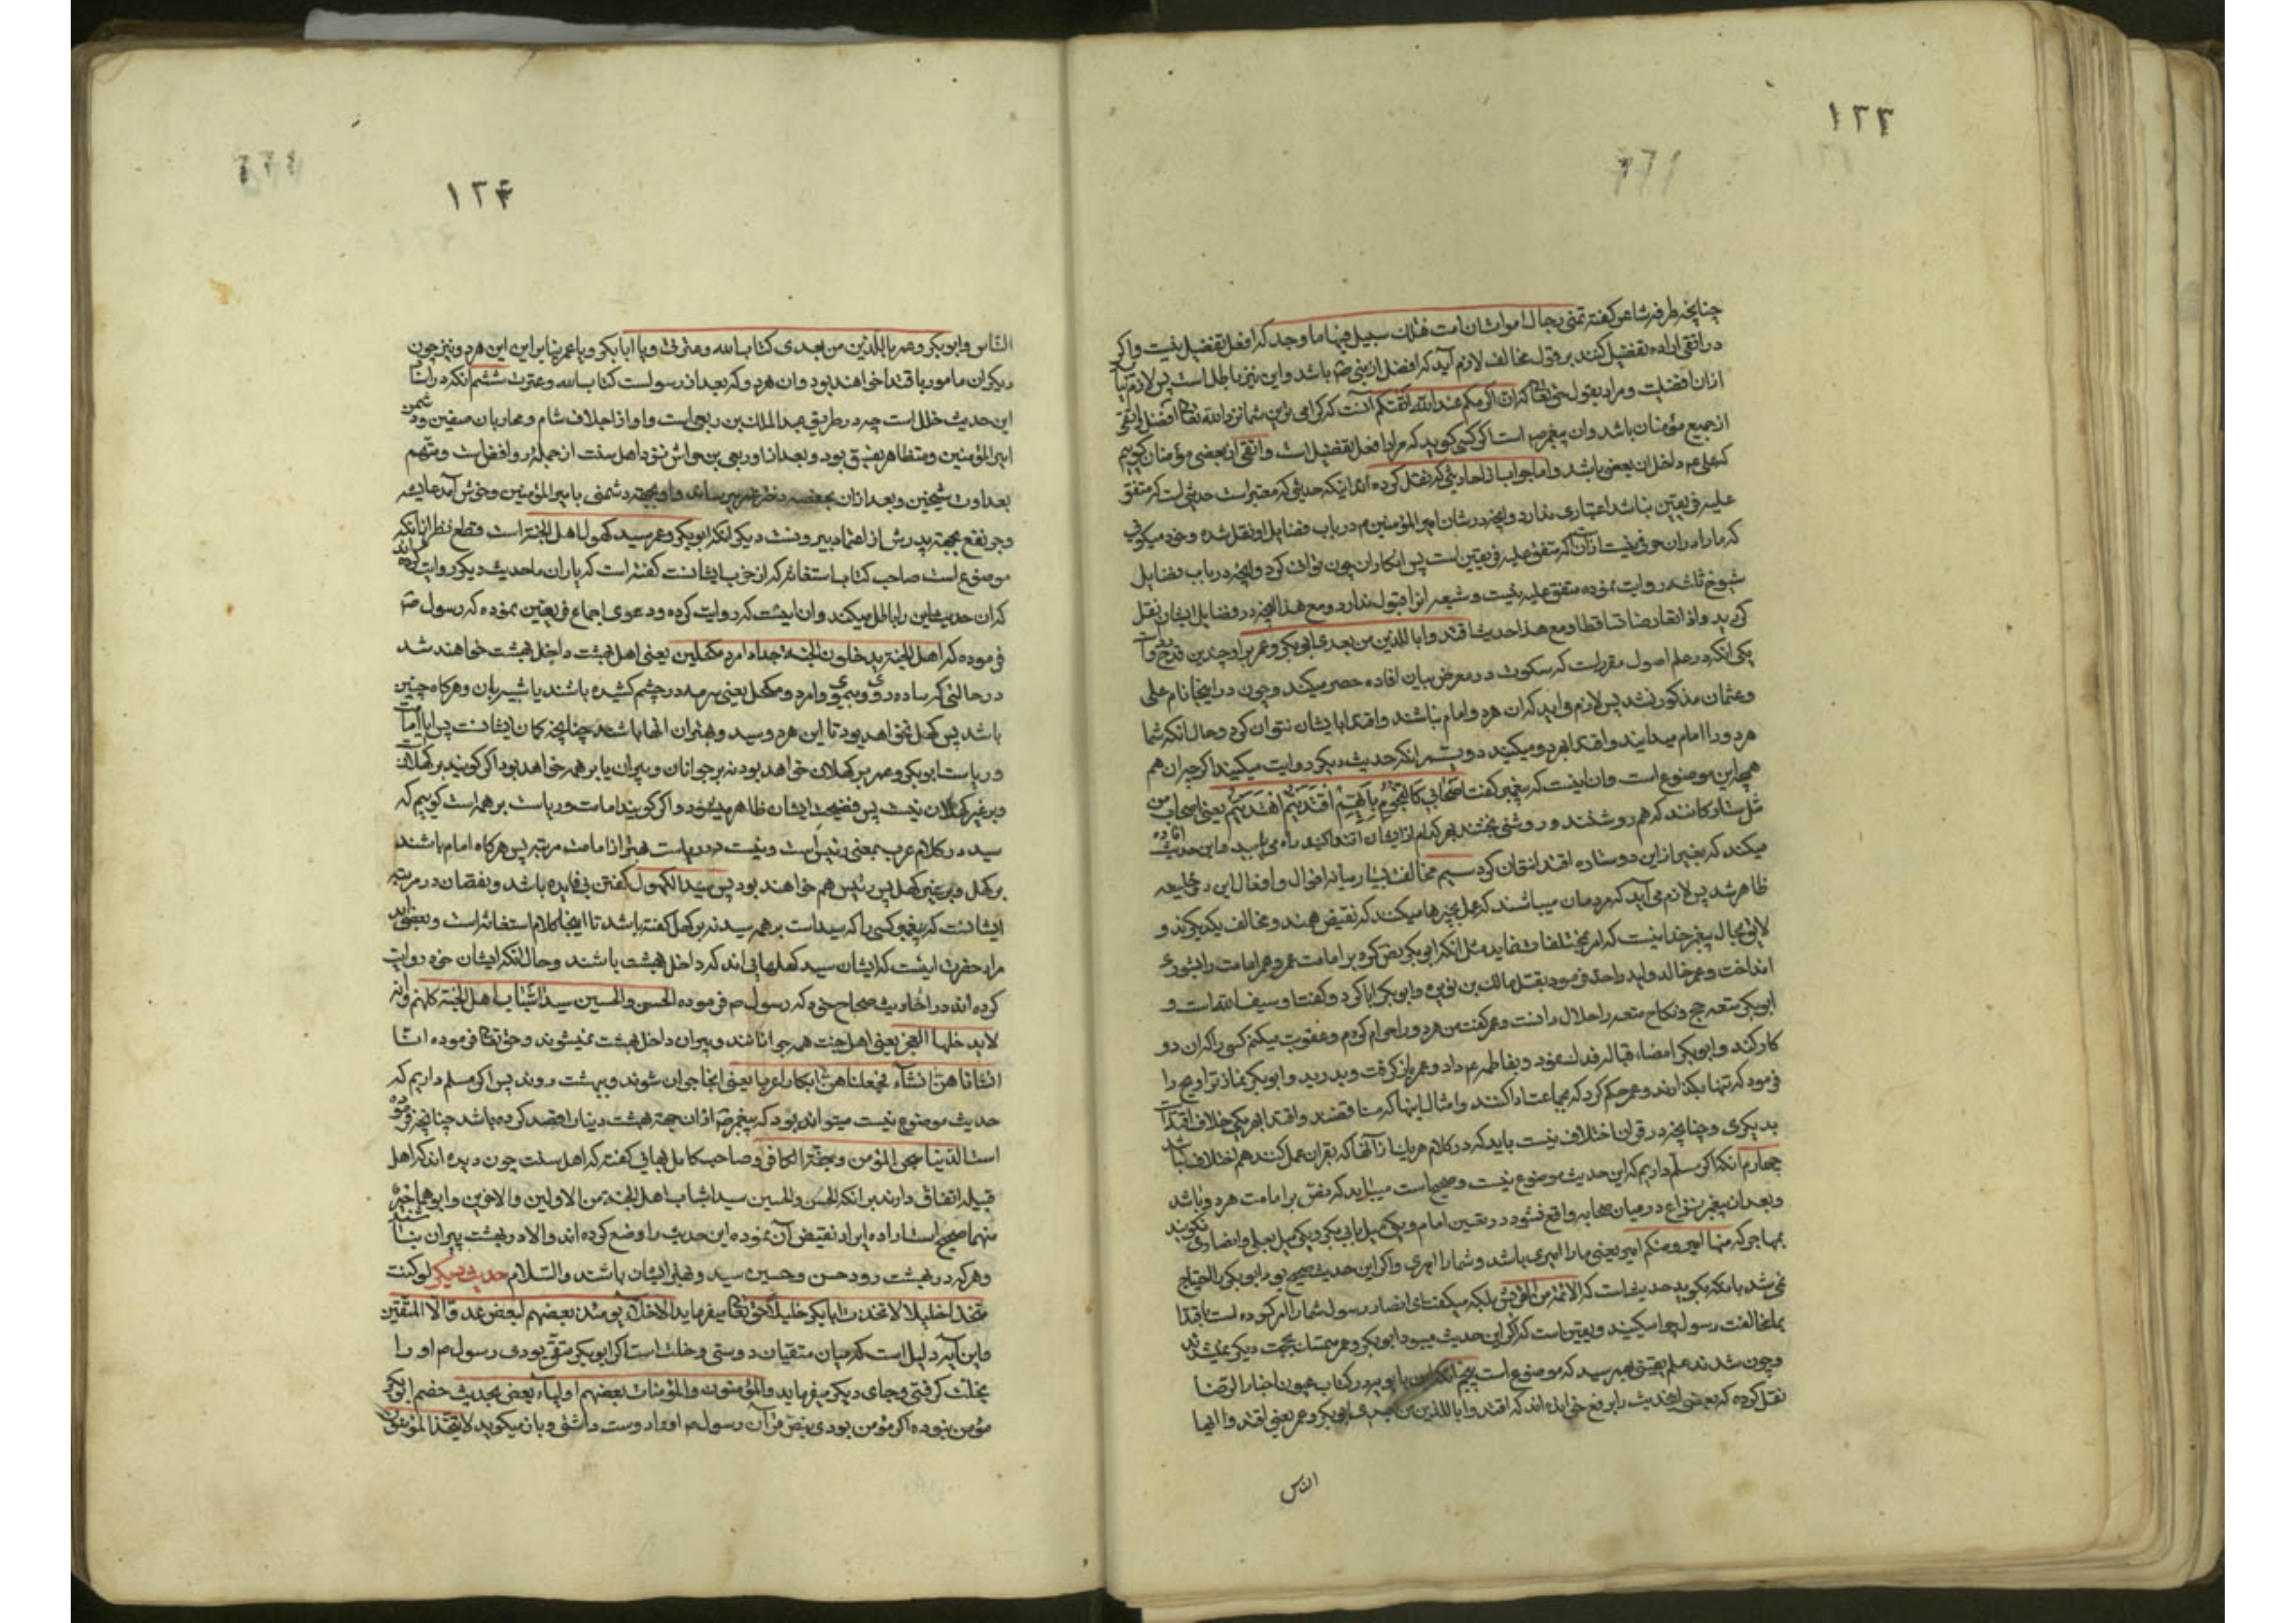 ۱۲۳
چنانچه طرفه شاعر گفته تمنی رجال ان اموت و ان امت فتلک سبیل فیها ما وجد که افعل تفضیل نیست واکر
در اتقی اراده تفضیل کنند بر قول مخالف لازم آید که افضل از نبی ص باشد واین نیز باطل است پس لازم
ازان افضلیت ومراد بقول حق تعالی که ان اکرمکم عند الله اتقیکم آنست که کرامی ترین شما نزد الله تعالی افضل واتقی
از جمیع مؤمنان باشد وان پیغمبر ص است اکر کسی کوید که مراد افعل تفضیل است واتقی از بعضی مؤمنان کوییم
که علی ع م داخل ان بعض باشد واما جواب از احادیثی که نقل کرده اند اینکه حدیثی که معتبر است حدیثی است که متفق
علیه فریقین باشد اعتباری ندارد وانچه در شان امیر المؤمنین م در باب فضایل او نقل شده وخود میکویی
که ما را دران حرفی نیست ازان که متفق علیه فریقین است پس انکار ان چون توان کرد وانچه در باب فضایل
شیوخ ثلثه روایت نموده متفق علیه نیست وشیعه انرا قبول ندارد ومع هذا انچه در فضایل ایشان نقل
کردید واذا تعارضا تساقطا ومع هذا حدیث اقتدوا بالذین من بعدی ابی بکر وعمر برا وچندین قدح وارد
یکی انکه در علم اصول مقرر است که سکوت در معرض بیان افاده حصر میکند وچون در اینجا نام علی
وعثمان مذکور نشد پس لازم آید که ان هر دو امام نباشند واقتدا بایشان نتوان کرد وحال انکه شما
هر دو را امام میدانید واقتدا بهر دو میکنید دویم انکه حدیث دیکر روایت میکنید اکر چه ان هم
همچو این موضوع است وان اینست که پیغمبر کفت اصحابی کالنجوم بایهم اقتدیتم اهتدیتم یعنی اصحاب من
مثل ستارکانند که هم روشنند وروشنی بخشند بهر کدام از ایشان اقتدا کنید راه می یابید واین حدیث افاده
میکند که بغیر از این دو ستاره اقتدا نتوان کرد سیم مخالفت بسیار میانه اقوال وافعال این دو خلیفه
ظاهر شد پس لازم می آید که مردمان میباشند که عمل بچیزها میکنند که نقیض همند ومخالف یکدیکرند و
لایق بحال پیغمبر خدا نیست که امر بمختلفات نماید مثل انکه ابی بکر نص کرد بر امامت عمر وعمر امامت را بشوری
انداخت وعمر خالد ولید را حد فرمود بقتل مالک بن نویره وابی بکر ابا کرد وکفت او سیف الله است و
ابی بکر متعه حج ونکاح متعه را حلال دانست وعمر کفت من هر دو را حرام کردم وعقوبت میکنم کسی را که ان دو
کار کند وابی بکر امضاء قباله فدک نمود وبفاطمه ع م داد وعمر باز کرفت وبدرید وابی بکر نماز تراویح را
فرمود که تنها بکذارند وعمر حکم کرد که بجماعت ادا کنند وامثال اینها که مناقضند واقتدا بهر یکی خلاف اقتدا
بدیکری وچنانچه در قران اختلاف نیست باید که در کلام هر یک از آنها که بقران عمل کنند هم اختلاف نباشد
چهارم انکه اکر مسلم داریم که این حدیث موضوع نیست وصحیح است میباید که نص بر امامت هر دو باشد
وبعد از پیغمبر نزاع در میان صحابه واقع نشود در تعیین امام ویکی میل بابی بکر ویکی میل بعلی وانصار نکویند
بمهاجر که منا امیر ومنکم امیر یعنی ما را امیری باشد وشما را امیری واکر این حدیث صحیح بود ابو بکر را احتیاج
نمی شد بانکه بکوید حدیث است که الائمة من القریش بلکه میکفت ای انصار رسول شما را امر کرده است باقتدا
بما مخالفت رسول چرا میکنید ویقین است که اکر این حدیث میبود ابو بکر وعمر متمسک بحجت دیکر نمیشدند
وچون نشدند علم یقینی بهم رسید که موضوع است پنجم انکه ابن بابویه در کتاب عیون اخبار الرضا
نقل کرده که بعضی این حدیث را برفع خوانده اند که اقتدوا باللذین من بعدی ابو بکر وعمر یعنی اقتدوا ایها
الناس
۱۲۴
النّاس وابو بکر وعمر باللذین من بعدی کتاب الله وعترتی ویا ابا بکر ویا عمر بنا براین این هر دو ونیز چون
دیکران مامور باقتدا خواهند بود وان هر دو که بعد از رسولست کتاب الله وعترت ششم انکه در اسناد
این حدیث خلل است چه در طریق عبد الملک بن ربعی است واو از اجلاف شام ومحاربان صفین ودشمن
امیر المؤمنین ومتظاهر بفسق بود وبعد از او ربعی بن حراش نزد اهل سنت از جمله روافض است ومتهم
بعداوت شیخین وبعد ازان بحفصه دختر عمر میرسانند واو بجهته دشمنی با امیر المؤمنین وخوش آمد عایشه
وجر نفع بجهته پدرش از اعتماد بیرونست دیکر انکه ابو بکر وعمر سید کهول اهل الجنة است قطع نظر از انکه
موضوع است صاحب کتاب استغاثه که از خوب ایشانست کفته است که یاران ما حدیث دیکر روایت کرده اند
که ان حدیث این را باطل میکند وان اینست که روایت کرده ودعوی اجماع فریقین نموده که رسول ص
فرموده که اهل الجنة یدخلون الجنة جردا مردا مکحلین یعنی اهل بهشت داخل بهشت خواهند شد
در حالتی که ساده روی وبیموی وامرد ومکحل یعنی سرمه در چشم کشیده باشند یا شبیه بان وهرکاه چنین
باشد پس کهل نخواهد بود تا این هر دو سید وبهتران انها باشند چنانچه کمان ایشانست پس ایا امامت
وریاست ابو بکر وعمر بر کهلان خواهد بود نه بر جوانان وپیران یا بر همه خواهد بود اکر کویند بر کهلانست
وبر غیر کهلان نیست پس فضیحت ایشان ظاهر میشود واکر کویند امامت وریاست بر همه است کوییم که
سید در کلام عرب بمعنی رئیس است ونیست در ریاست بهتر از امامت مرتبه پس هرکاه امام باشند
بر کهل وبر غیر کهل پس رئیس هم خواهند بود پس سید الکهول کفتن بی فایده باشد ونقصان در مرتبه
ایشانست که پیغمبر کسی را که سید است بر همه سید نه بر کهل کفته باشد تا اینجا کلام استغاثه است وبعضی کویند
مراد حضرت اینست که ایشان سید کهلهایی اند که داخل بهشت باشند وحال انکه ایشان خود روایت
کرده اند در احادیث صحاح خود که رسول م فرموده الحسن والحسین سید اشباب اهل الجنة کلهم وانه
لا یدخلها العجز یعنی اهل جنت همه جوانانند وپیران داخل بهشت نمیشوند وحق تعالی فرموده انّا
انشاناهنّ انشآء فجعلناهنّ ابکارا عربا یعنی اینجا جوان شوند وببهشت روند پس اکر مسلم داریم که
حدیث موضوع نیست میتواند بود که پیغمبر ص ازان جهته بهشت دنیا را قصد کرده باشد چنانچه فرموده
است الدّنیا سجن المؤمن وجنّة الکافر وصاحب کامل بهائی کفته که اهل سنت چون دیده اند که اهل
قبیله اتفاق دارند بر انکه الحسن والحسین سیدا شباب اهل الجنة من الاولین والاخرین وابوهما خیر
منهما صحیح است اراده ایراد نقیض آن نموده این حدیث را وضع کرده اند والا در بهشت پیران نباشند
وهر که در بهشت رود حسن وحسین سید وبهتر ایشان باشند والسّلام حدیث دیکر لو کنت
متخذا خلیلا لاتخذت ابا بکر خلیلا حق تعالی میفرماید الاخلآء یومئذ بعضهم لبعض عدوّ الّا المتّقین
واین آیه دلیل است که میان متقیان دوستی وخلت است اکر ابو بکر متقی بودی رسول م او را
بخلّت کرفتی وجای دیکر میفرماید والمؤمنون والمؤمنات بعضهم اولیاء بعض بحدیث خصم ابو بکر
مؤمن نبوده اکر مؤمن بودی بنصّ قرآن رسول م او را دوست داشتی وباز میکوید لا یتّخذ المؤمنون